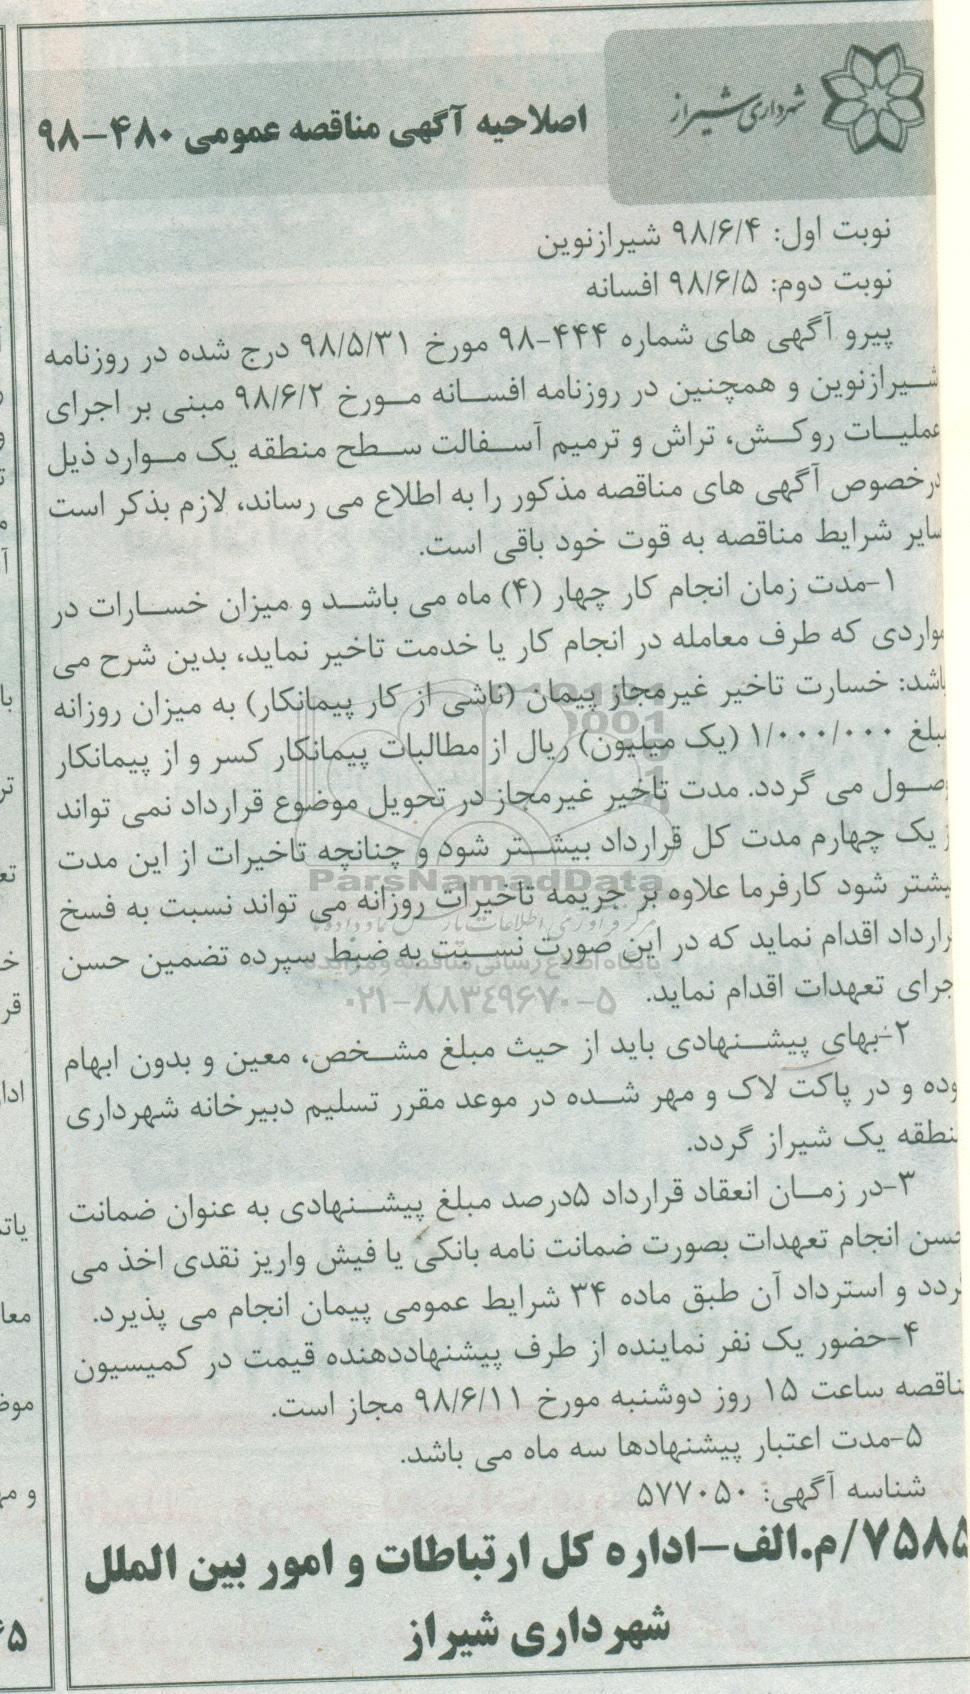 شهرداری شیراز
اصلاحیه آگهی مناقصه عمومی ۴۸۰-۹۸
نوبت اول: ۹۸/۶/۴ شیرازنوین
نوبت دوم: ۹۸/۶/۵ افسانه
پیرو آگهی های شماره ۴۴۴-۹۸ مورخ ۹۸/۵/۳۱ درج شده در روزنامه
شیرازنوین و همچنین در روزنامه افسانه مورخ ۹۸/۶/۲ مبنی بر اجرای
عملیات روکش، تراش و ترمیم آسفالت سطح منطقه یک موارد ذیل
درخصوص آگهی های مناقصه مذکور را به اطلاع می رساند، لازم بذکر است
سایر شرایط مناقصه به قوت خود باقی است.
۱-مدت زمان انجام کار چهار (۴) ماه می باشد و میزان خسارات در
مواردی که طرف معامله در انجام کار یا خدمت تاخیر نماید، بدین شرح می
باشد: خسارت تاخیر غیرمجاز پیمان (ناشی از کار پیمانکار) به میزان روزانه
مبلغ ۱/۰۰۰/۰۰۰ (یک میلیون) ریال از مطالبات پیمانکار کسر و از پیمانکار
وصول می گردد. مدت تاخیر غیرمجاز در تحویل موضوع قرارداد نمی تواند
از یک چهارم مدت کل قرارداد بیشتر شود و چنانچه تاخیرات از این مدت
بیشتر شود کارفرما علاوه بر جریمه تاخیرات روزانه می تواند نسبت به فسخ
قرارداد اقدام نماید که در این صورت نسبت به ضبط سپرده تضمین حسن
اجرای تعهدات اقدام نماید.
۲-بهای پیشنهادی باید از حیث مبلغ مشخص، معین و بدون ابهام
بوده و در پاکت لاک و مهر شده در موعد مقرر تسلیم دبیرخانه شهرداری
منطقه یک شیراز گردد.
۳-در زمان انعقاد قرارداد ۵درصد مبلغ پیشنهادی به عنوان ضمانت
حسن انجام تعهدات بصورت ضمانت نامه بانکی یا فیش واریز نقدی اخذ می
گردد و استرداد آن طبق ماده ۳۴ شرایط عمومی پیمان انجام می پذیرد.
۴-حضور یک نفر نماینده از طرف پیشنهاددهنده قیمت در کمیسیون
مناقصه ساعت ۱۵ روز دوشنبه مورخ ۹۸/۶/۱۱ مجاز است.
۵-مدت اعتبار پیشنهادها سه ماه می باشد.
شناسه آگهی: ۵۷۷۰۵۰
۷۵۸۵/م.الف-اداره کل ارتباطات و امور بین الملل
شهرداری شیراز
ParsNamadData
پایگاه اطلاع رسانی مناقصه و مزایده
۰۲۱-۸۸۳۴۹۶۷۰-۵